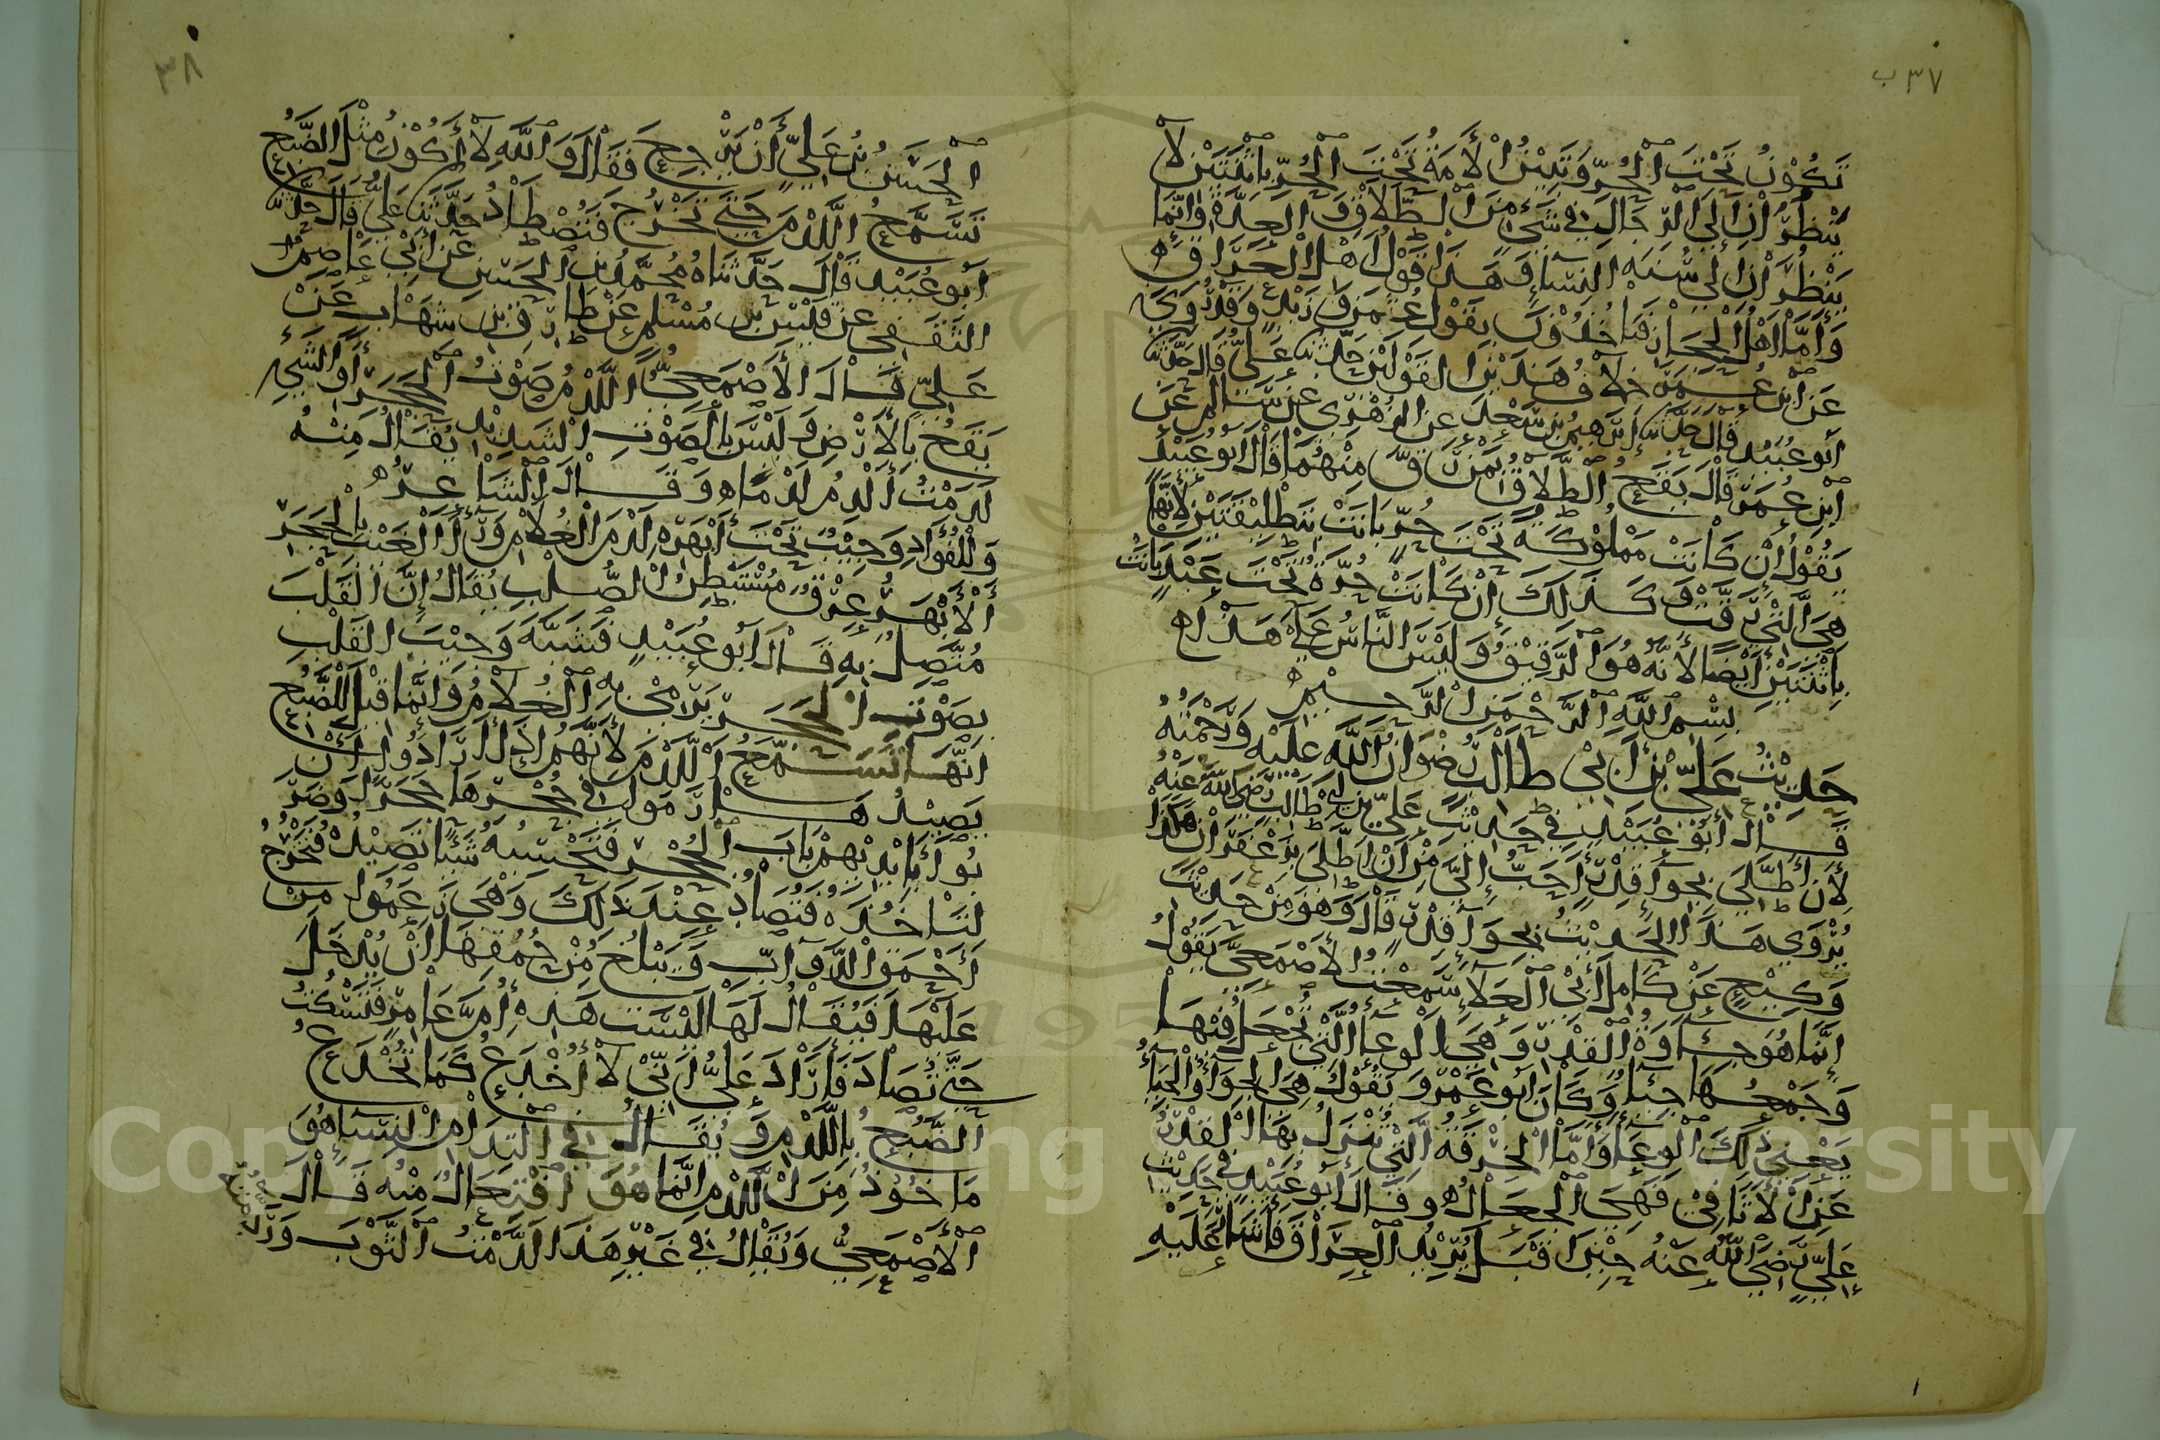 ٣٧ ب
تَكُوْنُ تَحْتَ الْحُرِّ وَتَبِيْنُ الْأَمَةُ تَحْتَ الْحُرِّ بِاثْنَتَيْنِ لَا
يَنْظُرُ اِلَى الرِّجَالِ فِي شَيْءٍ مِنَ الطَّلَاقِ وَ الْعِدَّةِ وَاِنَّمَا
يَنْظُرُ اِلَى سُنَّةِ النِّسَآءِ وَ هَذَا قَوْلُ اَهْلِ الْعِرَاقِ
وَاَمَّا اَهْلُ الْحِجَازِ فَيَأْخُذُوْنَ بِقَوْلِ عُثْمَنَ وَ زَيْدٍ وَقَدْ رُوِيَ
عَنِ ابْنِ عُمَرَ خِلَافُ هَذَيْنِ الْقَوْلَيْنِ حَدَّثَنَا عَلِيٌّ قَالَ حَدَّثَنَا
اَبُو عُبَيْدٍ قَالَ حَدَّثَنَا اِبْرَهِيْمُ بْنُ سَعْدٍ عَنِ الزُّهْرِيِّ عَنْ سَالِمٍ عَنِ
ابْنِ عُمَرَ قَالَ يَقَعُ الطَّلَاقُ بِمَنْ رَقَّ مِنْهُمَا قَالَ اَبُو عُبَيْدٍ
يَقُوْلُ اِنْ كَانَتْ مَمْلُوْكَةً تَحْتَ حُرٍّ بَانَتْ بِتَطْلِيْقَتَيْنِ لِاَنَّهَا
هِيَ الَّتِيْ رَقَّتْ وَ كَذَلِكَ اِنْ كَانَتْ حُرَّةً تَحْتَ عَبْدٍ بَانَتْ
بِاثْنَتَيْنِ اَيْضًا لِاَنَّهُ هُوَ الرَّقِيْقُ وَ لَيْسَ النَّاسُ عَلَى هَذَا
بِسْمِ اللَّهِ الرَّحْمَنِ الرَّحِيْمِ
حَدِيْثُ عَلِيِّ بْنِ اَبِيْ طَالِبٍ رِضْوَانُ اللَّهِ عَلَيْهِ وَرَحْمَتُهُ
قَالَ اَبُوْ عُبَيْدٍ فِي حَدِيْثِ عَلِيِّ بْنِ اَبِي طَالِبٍ رَضِيَ اللَّهُ عَنْهُ
لِاَنْ اَطَّلِيَ بِجِوَآءِ قِدْرٍ اَحَبُّ اِلَيَّ مِنْ اَنْ اَطَّلِيَ بِزَعْفَرَانٍ هَكَذَا
يُرْوَى هَذَا الْحَدِيْثُ بِجِوَآءِ قِدْرٍ قَالَ وَهُوَ مِنْ حَدِيْثِ
وَكِيْعٍ عَنْ كَامِلٍ اَبِي الْعَلَآءِ سَمِعْتُ الْاَصْمَعِيَّ يَقُوْلُ
اِنَّمَا هُوَ جِئَاوَةُ الْقِدْرِ وَ هِيَ الْوِعَآءُ الَّتِيْ تُجْعَلُ فِيْهَا
وَجَمْعُهَا جِئَاءٌ وَ كَانَ اَبُو عَمْرٍو يَقُوْلُ هِيَ الْجِوَآءُ وَالْجِيَآءُ
يَعْنِيْ ذَلِكَ الْوِعَآءَ وَاَمَّا الْخِرْقَةُ الَّتِيْ تُنْزَلُ بِهَا الْقِدْرُ
عَنِ الْاَثَافِيْ فَهِيَ الْجِعَالُ وَ قَالَ اَبُو عُبَيْدٍ فِي حَدِيْثِ
عَلِيٍّ رَضِيَ اللَّهُ عَنْهُ حِيْنَ اَقْبَلَ يُرِيْدُ الْعِرَاقَ فَاَشَارَ عَلَيْهِ
٣٨
الْحَسَنُ بْنُ عَلِيٍّ اَنْ يَرْجِعَ فَقَالَ وَ اللَّهِ لَا اَكُوْنُ مِثْلَ الضَّبُعِ
تَسْمَعُ اللَّدْمَ حَتَّى تَخْرُجَ فَتُصْطَادُ حَدَّثَنَا عَلِيٌّ قَالَ حَدَّثَنَا
اَبُو عُبَيْدٍ قَالَ حَدَّثَنَاهُ مُحَمَّدُ بْنُ الْحَسَنِ عَنْ اَبِيْ عَاصِمٍ
الثَّقَفِيِّ عَنْ قَيْسِ بْنِ مُسْلِمٍ عَنْ طَارِقِ بْنِ شِهَابٍ عَنْ
عَلِيٍّ قَالَ الْاَصْمَعِيُّ اللَّدْمُ صَوْتُ الْحَجَرِ اَوِ الشَّيْءِ
يَقَعُ بِالْاَرْضِ وَ لَيْسَ بِالصَّوْتِ الشَّدِيْدِ يُقَالُ مِنْهُ
لَدَمْتُ اَلْدِمُ لَدْمًا وَ قَالَ الشَّاعِرُ
وَ لِلْفُؤَادِ وَجِيْبٌ تَحْتَ اَبْهَرِهِ لَدْمَ الْغُلَامِ وَرَآءَ الْغَيْبِ بِالْحَجَرِ
اَلْاَبْهَرُ عِرْقٌ مُسْتَبْطِنُ الصُّلْبِ يُقَالُ اِنَّ الْقَلْبَ
مُتَّصِلٌ بِهِ قَالَ اَبُو عُبَيْدٍ فَشَبَّهَ وَجِيْبَ الْقَلْبِ
بِصَوْتِ الْحَجَرِ يَرْمِيْ بِهِ الْغُلَامُ وَاِنَّمَا قِيْلَ لِلضَّبُعِ
اِنَّهَا تَسْمَعُ اللَّدْمَ لِاَنَّهُمْ اِذَا اَرَادُوا اَنْ
يَصِيْدُوهَا رَمَوْا فِي جُحْرِهَا بِحَجَرٍ اَوْ ضَرَبُوا
بِاَيْدِيْهِمْ بَابَ الْجُحْرِ فَتَحْسِبُهُ شَيْئًا تَصِيْدُهُ فَتَخْرُجُ
لِتَأْخُذَهُ فَتُصَادُ عِنْدَ ذَلِكَ وَهِيَ زَعَمُوا مِنْ
اَحْمَقِ الدَّوَآبِّ وَ يَبْلُغُ مِنْ حُمْقِهَا اَنْ يُدْخَلَ
عَلَيْهَا فَيُقَالُ لَهَا لَيْسَتْ هَذِهِ اُمَّ عَامِرٍ فَتَسْكُتُ
حَتَّى تُصَادَ فَاَرَادَ عَلِيٌّ اِنِّيْ لَا اُخْدَعُ كَمَا تُخْدَعُ
الضَّبُعُ بِاللَّدْمِ وَ يُقَالُ فِي الْتِدَامِ النِّسَآءِ هُوَ
مَأْخُوْذٌ مِنَ اللَّدْمِ اِنَّمَا هُوَ افْتِعَالٌ مِنْهُ قَالَ
الْاَصْمَعِيُّ وَيُقَالُ فِي غَيْرِ هَذَا لَدَّمْتُ الثَّوْبَ وَرَدَّمْتُهُ
Copyright © King Saud University
1957